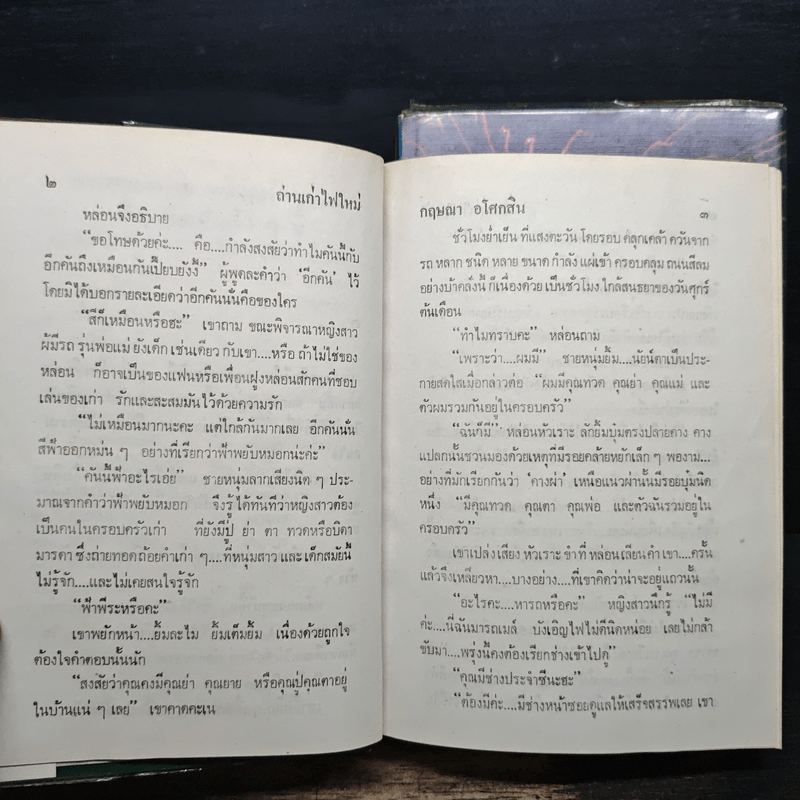 ๒
ถ่านเก่าไฟใหม่
หล่อนจึงอธิบาย
“ขอโทษด้วยค่ะ.... คือ....กำลังสงสัยว่าทำไมคันนี้กับ
อีกคันถึงเหมือนกันเปี๊ยบยังงี้” ผู้พูดละคำว่า ‘อีกคัน’ ไว้
โดยมิได้บอกรายละเอียดว่าอีกคันนั่นคือของใคร
“สีก็เหมือนหรือฮะ” เขาถาม ขณะพิจารณาหญิงสาว
ผู้มีรถ รุ่นพ่อแม่ ยังเด็ก เช่นเดียว กับเขา....หรือ ถ้า ไม่ใช่ของ
หล่อน ก็อาจเป็นของแฟนหรือเพื่อนฝูงหล่อนสักคนที่ชอบ
เล่นของเก่า รักและสะสมมันไว้ด้วยความรัก
“ไม่เหมือนมากนะคะ แต่ใกล้กันมากเลย อีกคันนั่น
สีฟ้าออกหม่น ๆ อย่างที่เรียกว่าฟ้าพยับหมอกน่ะค่ะ”
“คันนี้ฟ้าอะไรเอ่ย” ชายหนุ่มลากเสียงนิด ๆ ประ-
มาณจากคำว่าฟ้าพยับหมอก จึงรู้ ได้ทันทีว่าหญิงสาวต้อง
เป็นคนในครอบครัวเก่า ที่ยังมีปู่ ย่า ตา ทวดหรือบิดา
มารดา ซึ่งถ่ายทอดถ้อยคำเก่า ๆ....ที่หนุ่มสาว และ เด็กสมัยนี้
ไม่รู้จัก....และไม่เคยสนใจรู้จัก
“ฟ้าพีระหรือคะ”
เขาพยักหน้า....ยิ้มละไม ยิ้มเต็มยิ้ม เนื่องด้วยถูกใจ
ต้องใจคำตอบนั้นนัก
“สงสัยว่าคุณคงมีคุณย่า คุณยาย หรือคุณปู่คุณตาอยู่
ในบ้านแน่ ๆ เลย” เขาคาดคะเน
กฤษณา อโศกสิน
๓
ชั่วโมงย่ำเย็น ที่แสงตะวัน โดยรอบ คลุกเคล้า ควันจาก
รถ หลาก ชนิด หลาย ขนาด กำลัง แผ่เข้า ครอบคลุม ถนนสีลม
อย่างบ้าคลั่งนั้น ก็เนื่องด้วย เป็นชั่วโมง ใกล้สนธยาของวันศุกร์
ต้นเดือน
“ทำไมทราบคะ” หล่อนถาม
“เพราะว่า....ผมมี” ชายหนุ่มยิ้ม....นัยน์ตาเป็นประ-
กายสดใสเมื่อกล่าวต่อ “ผมมีคุณทวด คุณย่า คุณแม่ และ
ตัวผมรวมกันอยู่ในครอบครัว”
“ฉันก็มี” หล่อนหัวเราะ ลักยิ้มบุ๋มตรงปลายคาง คาง
แปลกนั้นชวนมองด้วยเหตุที่มีรอยคล้ายหยักเล็ก ๆ พองาม...
อย่างที่มักเรียกกันว่า ‘คางผ่า’ เหนือแนวผ่านั้นมีรอยบุ๋มนิด
หนึ่ง “มีคุณทวด คุณตา คุณพ่อ และตัวฉันรวมอยู่ใน
ครอบครัว”
เขาเปล่ง เสียง หัวเราะ ขำ ที่ หล่อน เลียน คำ เขา....ครั้น
แล้วจึงเหลียวหา....บางอย่าง....ที่เขาคิดว่าน่าจะอยู่แถวนั้น
“อะไรคะ....หารถหรือคะ” หญิงสาวนึกรู้ “ไม่มี
ค่ะ....นี่ฉันมารถเมล์ บังเอิญไฟไม่ดีนิดหน่อย เลยไม่กล้า
ขับมา....พรุ่งนี้คงต้องเรียกช่างเข้าไปดู”
“คุณมีช่างประจำซีนะฮะ”
“ต้องมีค่ะ....มีช่างหน้าซอยดูแลให้เสร็จสรรพเลย เขา